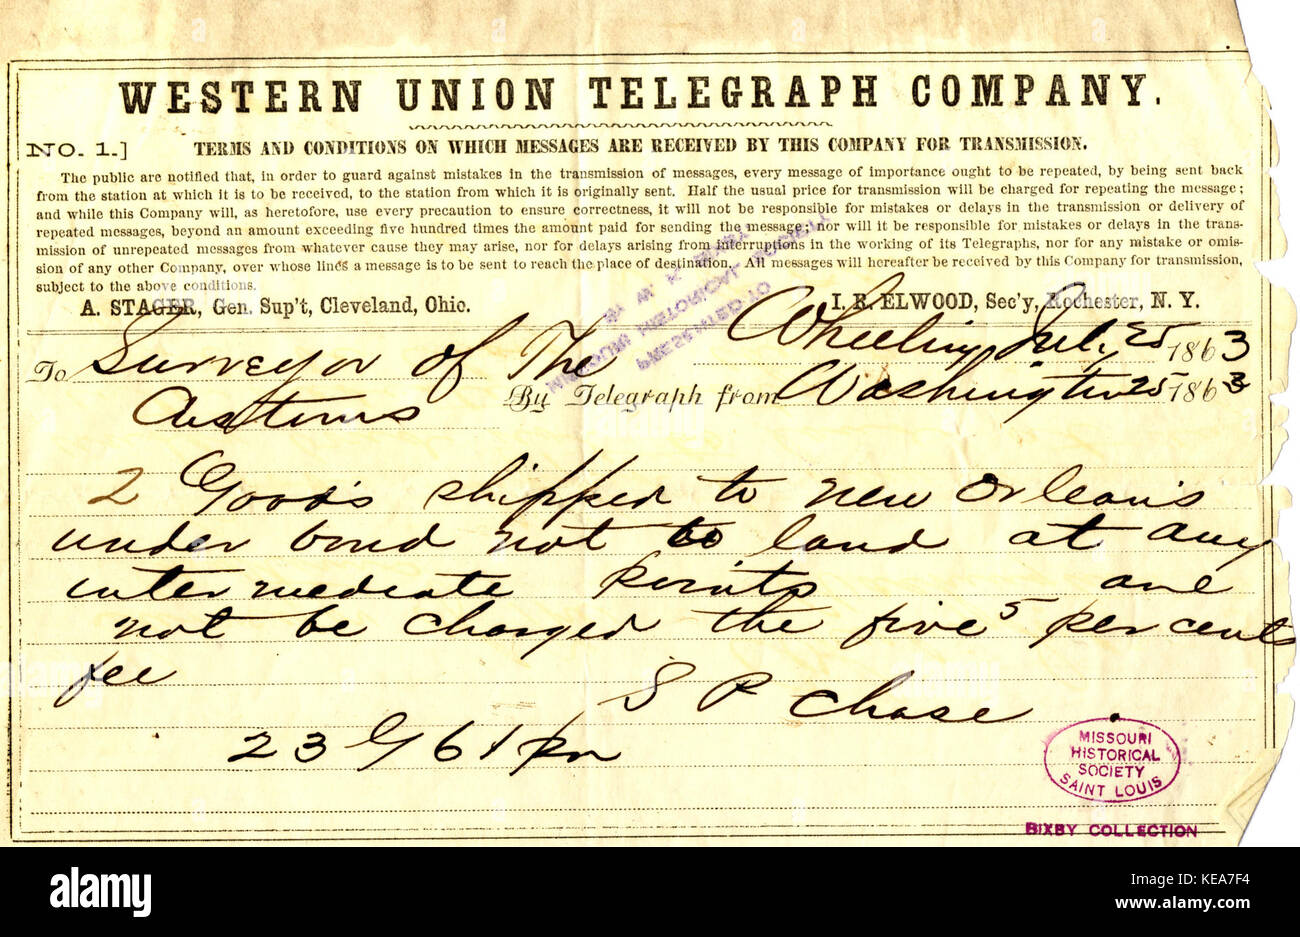 WESTERN UNION TELEGRAPH COMPANY.
NO. 1.] TERMS AND CONDITIONS ON WHICH MESSAGES ARE RECEIVED BY THIS COMPANY FOR TRANSMISSION.
The public are notified that, in order to guard against mistakes in the transmission of messages, every message of importance ought to be repeated, by being sent back
from the station at which it is to be received, to the station from which it is originally sent. Half the usual price for transmission will be charged for repeating the message;
and while this Company will, as heretofore, use every precaution to ensure correctness, it will not be responsible for mistakes or delays in the transmission or delivery of
repeated messages, beyond an amount exceeding five hundred times the amount paid for sending the message; nor will it be responsible for mistakes or delays in the trans-
mission of unrepeated messages from whatever cause they may arise, nor for delays arising from interruptions in the working of its Telegraphs, nor for any mistake or omis-
sion of any other Company, over whose lines a message is to be sent to reach the place of destination. All messages will hereafter be received by this Company for transmission,
subject to the above conditions.
A. STAGER, Gen. Sup't, Cleveland, Ohio. I. R. ELWOOD, Sec'y, Rochester, N. Y.
PRESENTED TO
MISSOURI HISTORICAL SOCIETY
BY
Wheeling July 25 1863
To Surveyor of The
Customs
By Telegraph from Washington 25 1863
2 Goods shipped to new Orleans
under bond not to land at any
intermediate points are
not be charged the five 5 per cents
fee
S P Chase
23 G 61 pm
MISSOURI
HISTORICAL
SOCIETY
SAINT LOUIS
BIXBY COLLECTION
alamy
Image ID: KEA7F4
www.alamy.com